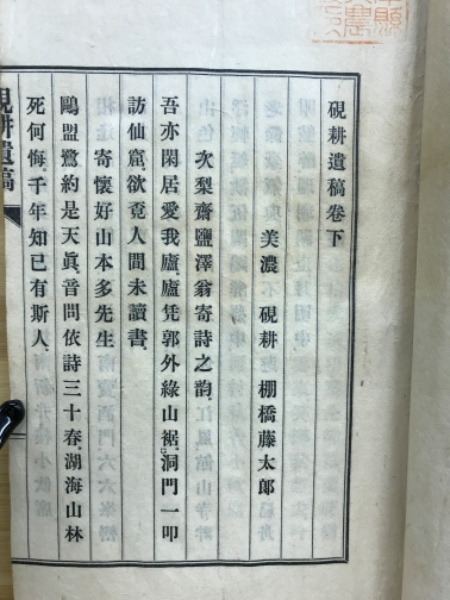 硯耕遺稿卷下
美濃　硯耕　棚橋藤太郎
次梨齋鹽澤翁寄詩之韵
吾亦閑居愛我廬。廬凭郭外綠山裾。洞門一叩
訪仙窟。欲覓人間未讀書。
寄懷好山本多先生
鷗盟鷺約是天眞。音問依詩三十春。湖海山林
死何悔。千年知己有斯人。
硯耕遺稿